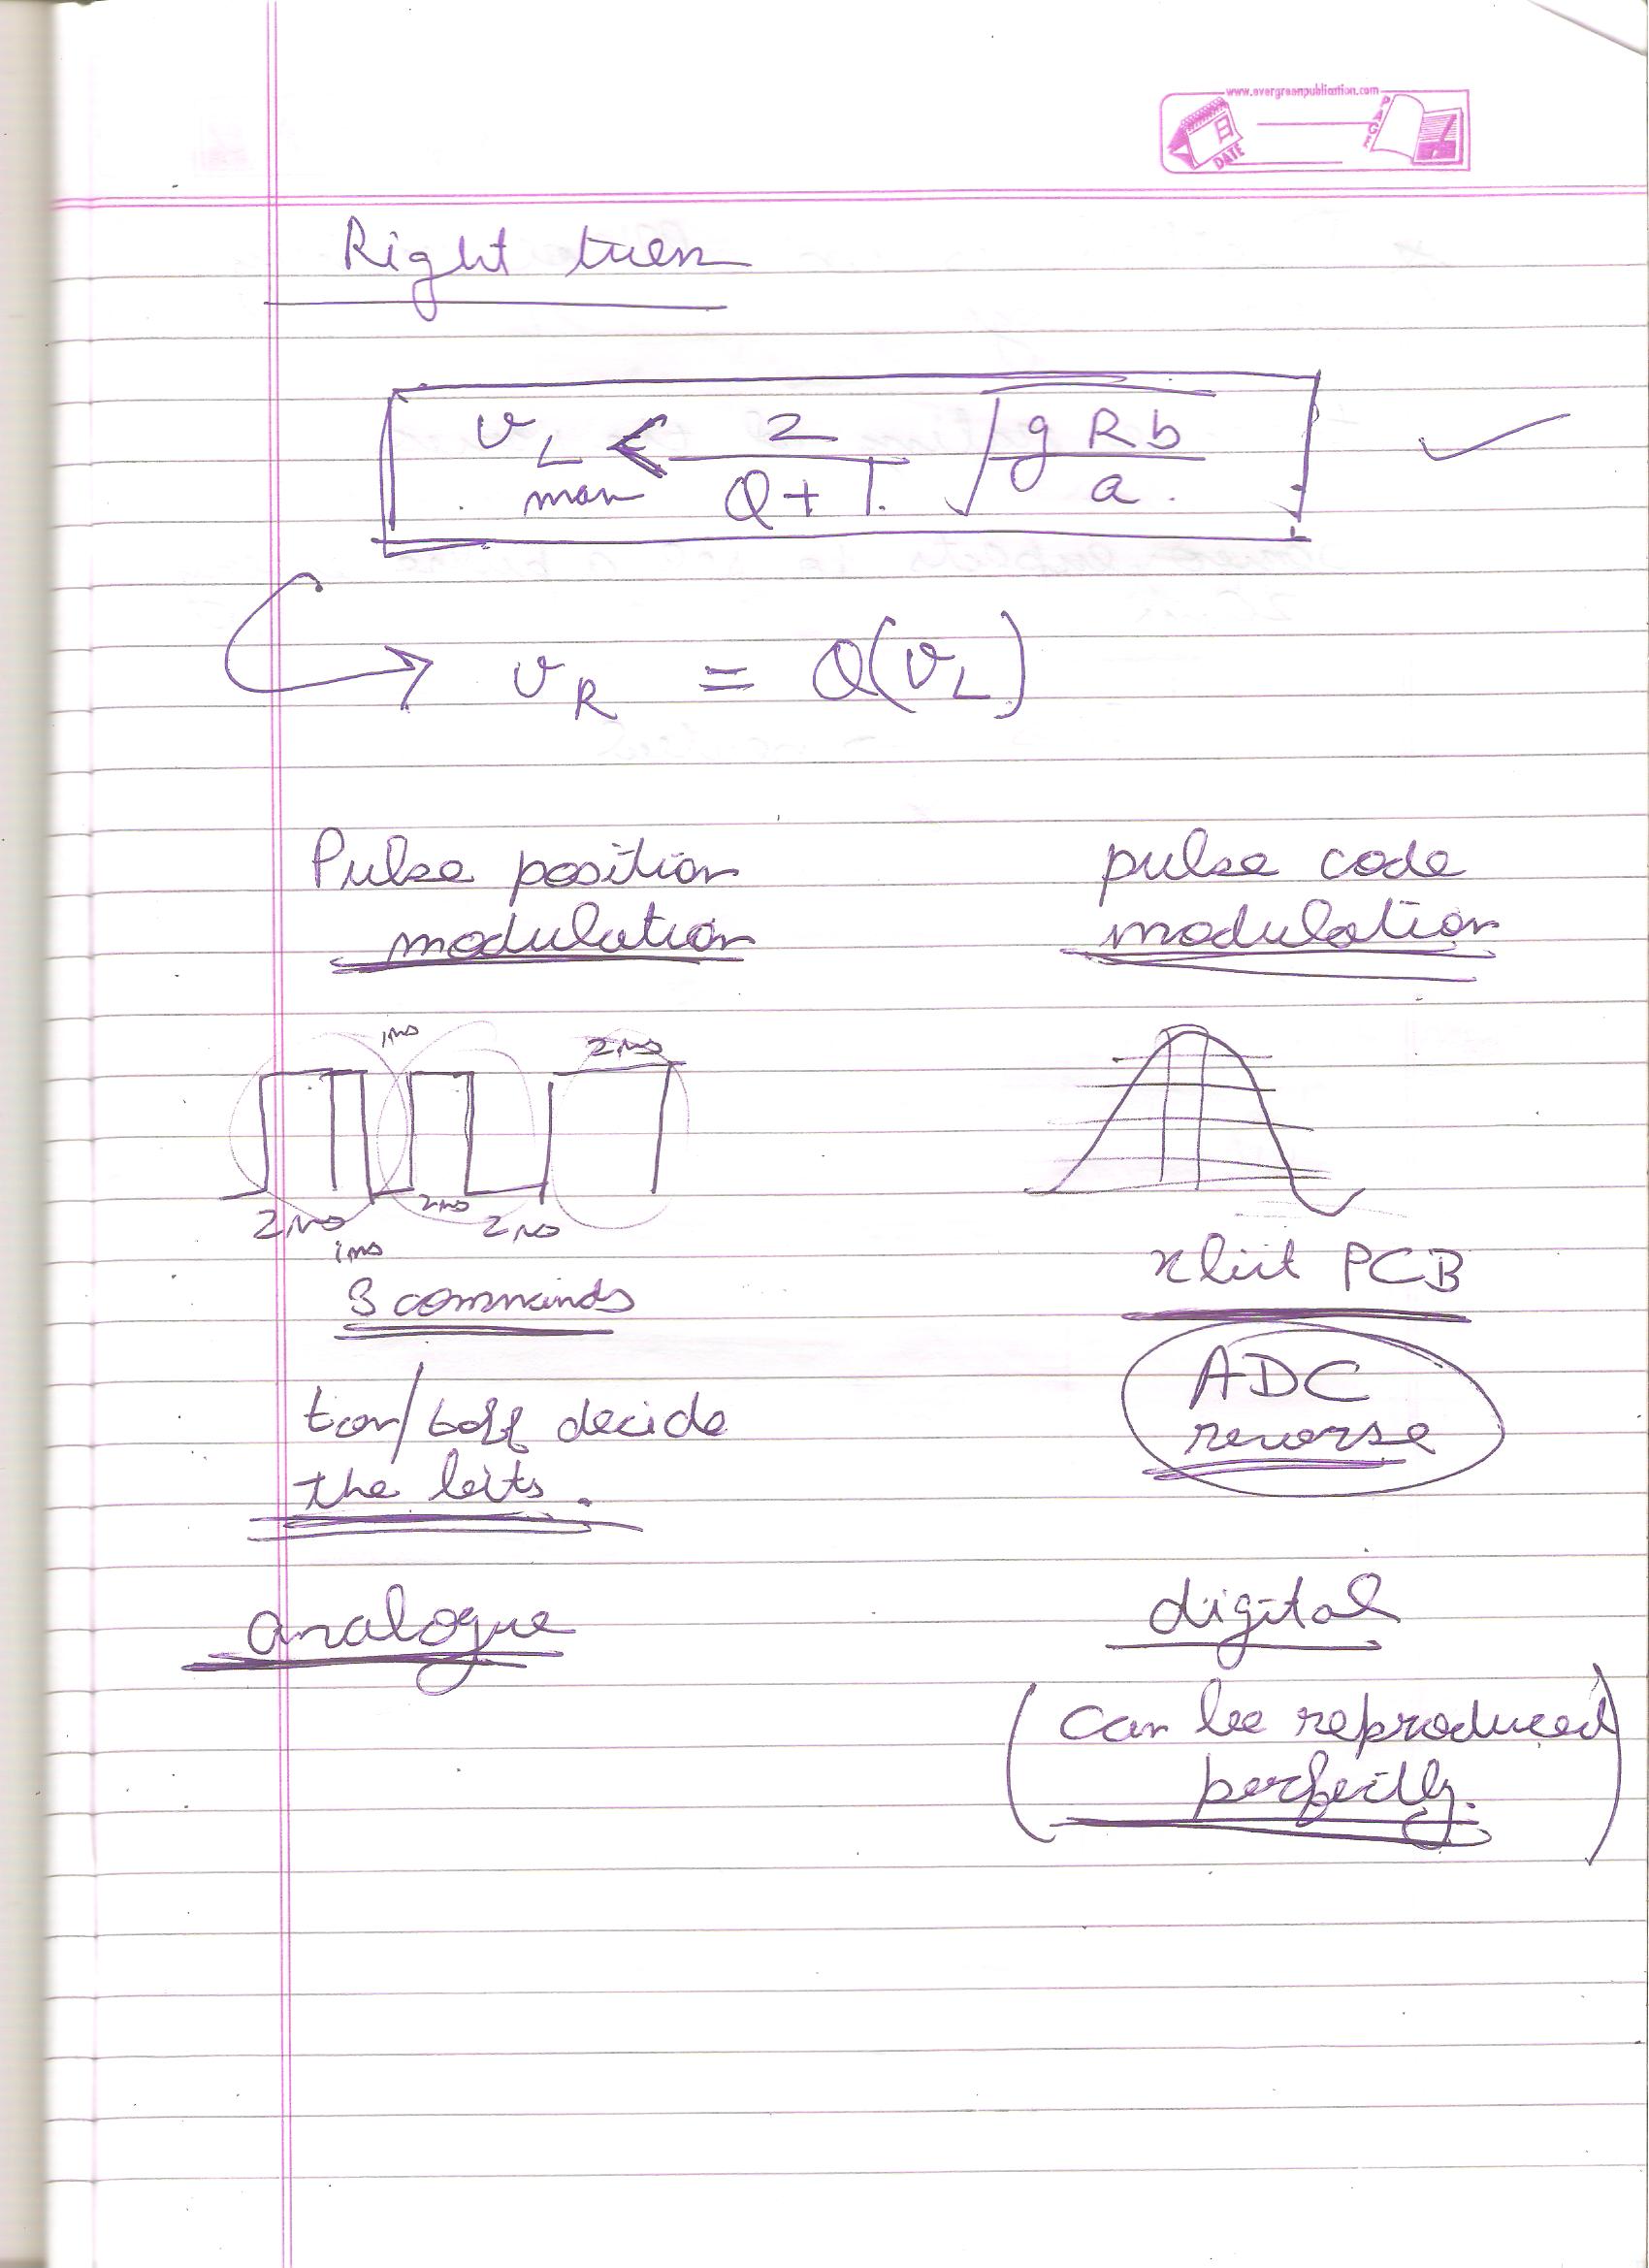 www.evergreenpublication.com
DATE
PAGE
Right turn
v_L max < 2 / (Q + 1) √(g R b / a)
v_R = Q(v_L)
Pulse position
modulation
1ms
2ms
2ms
2ms
2ms
1ms
3 commands
ton/toff decide
the bits.
analogue
pulse code
modulation
x bit PCB
ADC
reverse
digital
(can be reproduced
perfectly.)